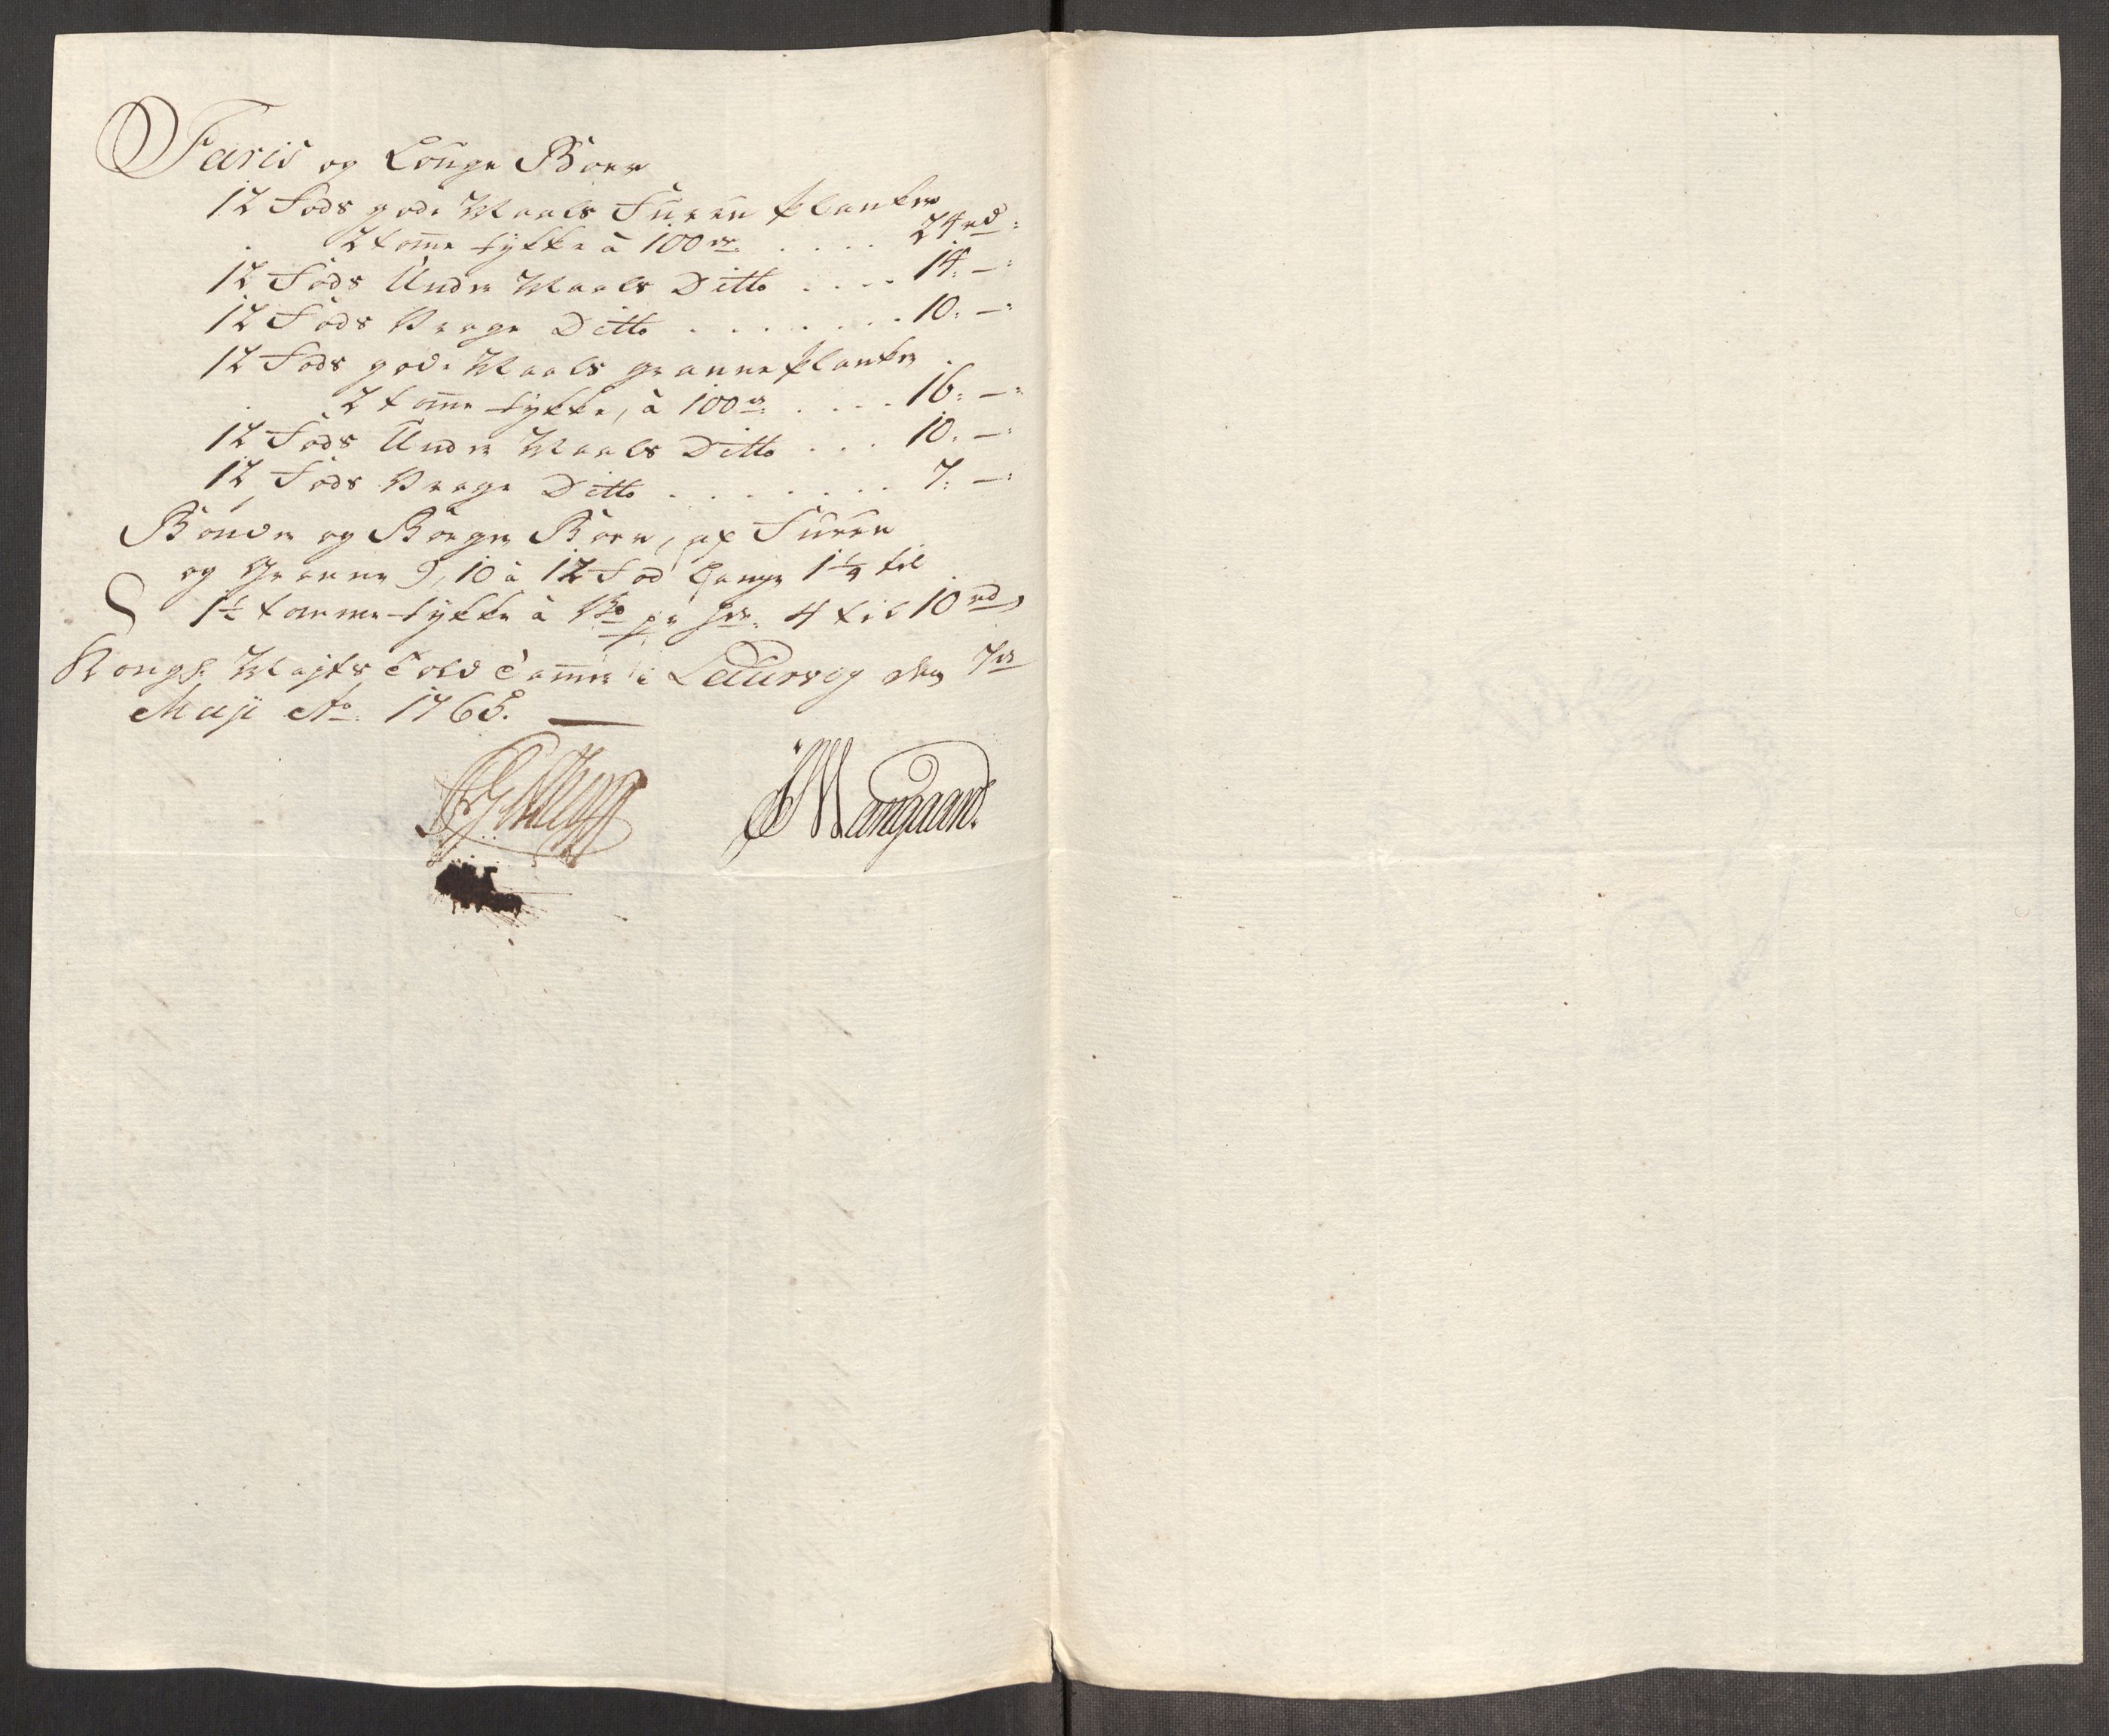 Faris og Louge Boer
12 Fods gode Maals Furru Planker
2 tomme tykke à 100de .... 24 rd:
12 Fods Under Maals Ditto .... 14: —:
12 Fods Vrage Ditto ........ 10: —:
12 Fods gode Maals granne Planker
2 tomme tykke, à 100de .... 16: —:
12 Fods Under Maals Ditto ... 10: —:
12 Fods Vrage Ditto ....... 7: —:
Bonde og Borger Boer, af Furru
og Granne 9, 10 à 12 Fod Lange 1 1/4 til
1 1/2 tomme tykke à 4 til 10 rd,
Kongl: Majts Told Camer i Laurvig den 7de
Maji Ao. 1765.